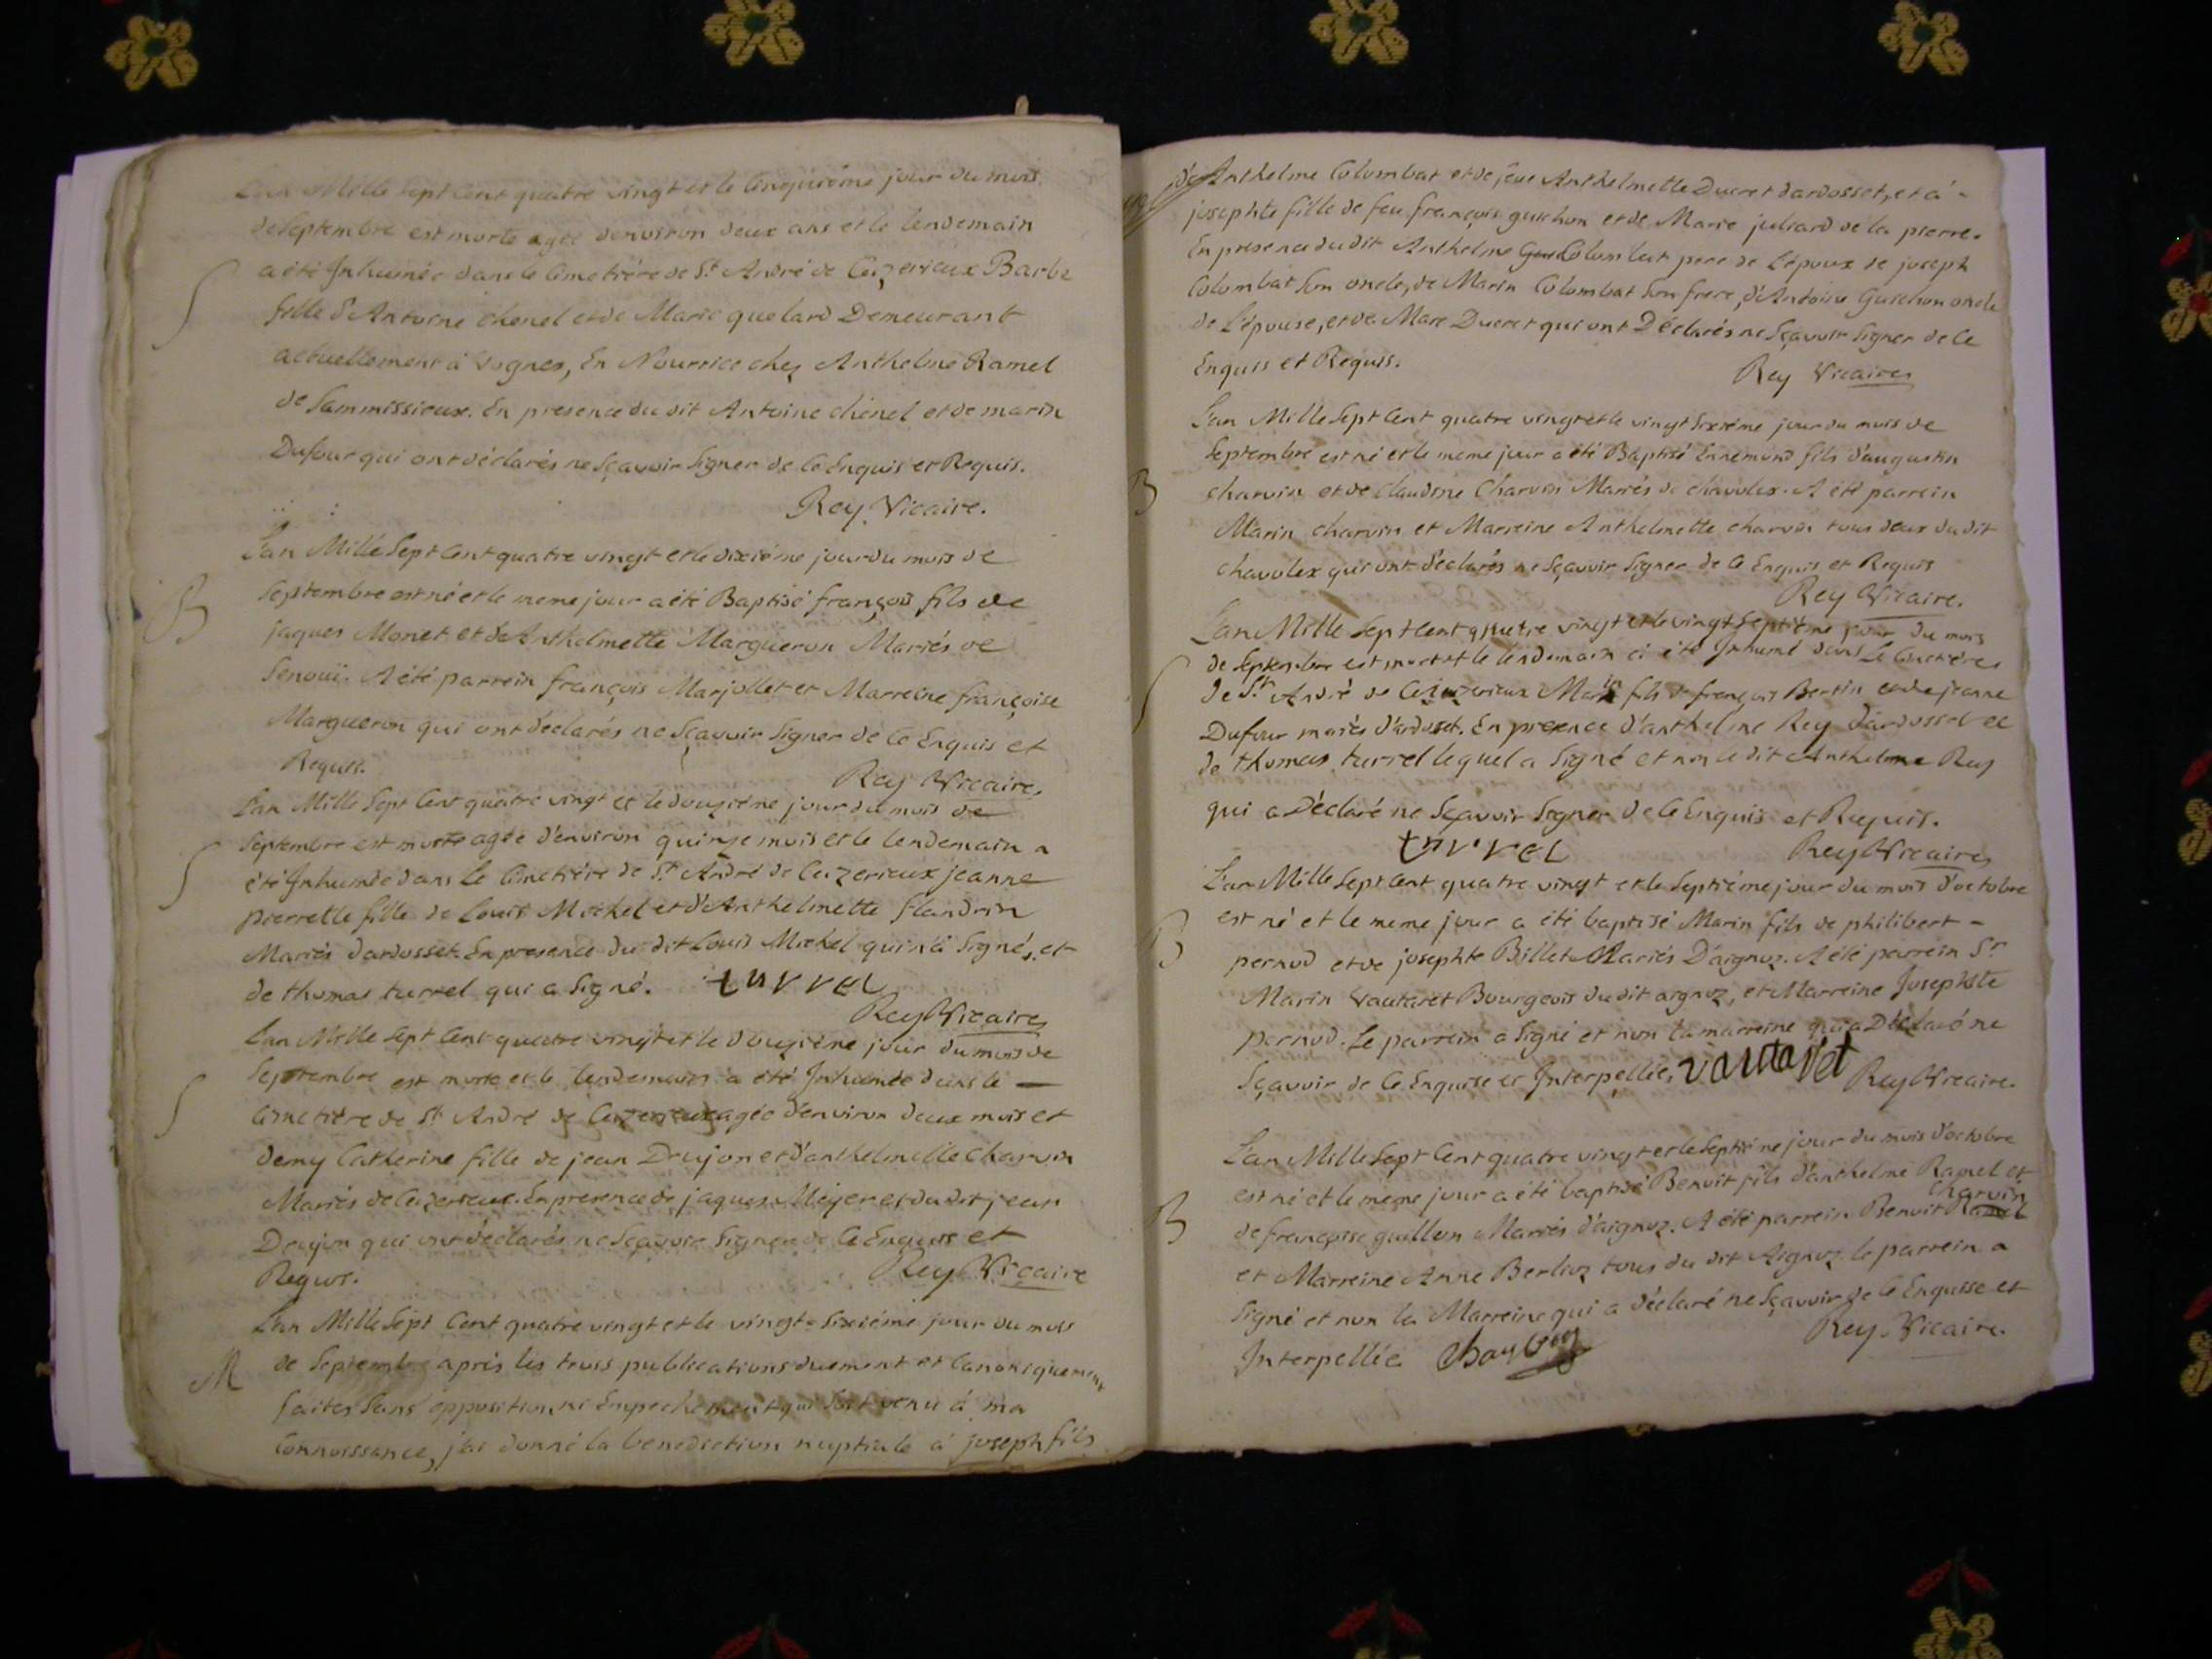 L'an Mille Sept Cent quatre vingt et le Cinquiéme jour du mois
de Septembre est morte agée d'environ deux ans et le lendemain
S a été Inhumée dans le Cimetiére de St André de Ceyzerieux Barbe
fille d'Antoine Chenel et de Marie quelard Demeurant
actuellement à vognes, En Nourrice chez Anthelme Ramel
de Sammissieux. En presence du dit Antoine chenel et de marin
Dufour qui ont déclarés ne Sçavoir Signer de Ce Enquis et Requis.
Rey Vicaire.
L'an Mille Sept Cent quatre vingt et le dixiéme jour du mois de
B Septembre est né et le meme jour a été Baptisé françois fils de
jaques Monet et de Anthelmette Margueron Mariés de
Senoui. A été parrein françois Marjollet et Marreine françoise
Margueron qui ont déclarés ne Sçavoir Signer de Ce Enquis et
Requis.
Rey Vicaire,
L'an Mille Sept Cent quatre vingt et le douziéme jour du mois de
Septembre est morte agée d'environ quinze mois et le lendemain a
S été Inhumée dans Le Cimetiére de St André de Ceyzerieux jeanne
pierrette fille de Louis Michel et d'Anthelmette flandrin
Mariés dardosset. En presence du dit Louis Michel qui n'a Signé, et
de thomas turrel qui a Signé. turrel
Rey Vicaire
L'an Mille Sept Cent quatre vingt et le douziéme jour du mois de
S Septembre est morte et le lendemain a été Inhumée dans le
Cimetiére de St André de Ceyzerieux agée d'environ deux mois et
demy Catherine fille de jean Drujon et d'anthelmette charvin
Mariés de Ceyzerieux. En presence de jaques Meyer et du dit jean
Drujon qui ont déclarés ne Sçavoir Signer de Ce Enquis et
Requis.
Rey Vicaire
L'an Mille Sept Cent quatre vingt et le vingt-Sixiéme jour du mois
M de Septembre aprés les trois publications duement et Canoniquement
faites Sans opposition, ni Empechement qui Soit venu à ma
Connoissance, j'ai donné la benediction nuptiale à joseph fils
d'Anthelme Colombat et de feue Anthelmette Ducret dardosset, et à
josephte fille de feu françois guichon et de Marie juliard de la pierre.
En presence du dit Anthelme Colombat pere de L'époux de joseph
Colombat Son oncle, de Marin Colombat Son frere, d'Antoine Guichon oncle
de L'épouse, et de Marc Ducret qui ont Déclarés ne Sçavoir Signer de Ce
Enquis et Requis.
Rey Vicaire
L'an Mille Sept Cent quatre vingt et le vingt Sixiéme jour du mois de
Septembre est né et le meme jour a été Baptisé Ennemond fils d'augustin
B charvin et de claudine Charvin Mariés de chavolex. A été parrein
Marin charvin et Marreine Anthelmette charvin tous deux du dit
chavolex qui ont déclarés ne Sçavoir Signer de Ce Enquis et Requis
Rey Vicaire.
L'an Mille Sept Cent quatre vingt et le vingt Septiéme jour du mois
de Septembre est mort et le lendemain a été Inhumé dans Le Cimetiére
S de St André de Ceyzerieux Marin fils de françois Bertin et de jeanne
Dufour mariés d'ardosset. En presence d'anthelme Rey d'ardosset et
de thomas turrel lequel a Signé et non le dit Anthelme Rey
qui a Déclaré ne Sçavoir Signer de Ce Enquis et Requis.
turrel
Rey Vicaire
L'an Mille Sept Cent quatre vingt et le Septiéme jour du mois d'octobre
est né et le meme jour a été baptisé Marin fils de philibert
B pernod et de josephte Billet Mariés D'aignoz. A été parrein Sr
Marin Vautaret Bourgeois du dit aignoz, et Marreine Josephte
pernod. Le parrein a Signé et non la marreine qui a Déclaré ne
Sçavoir de Ce Enquise et Interpellée, vautaret Rey Vicaire.
L'an Mille Sept Cent quatre vingt et le Septiéme jour du mois d'octobre
est né et le meme jour a été baptisé Benoit fils d'anthelme Ramel et
charvin
B de françoise guillon Mariés d'aignoz. A été parrein Benoit Ramel
et Marreine Anne Berlioz tous du dit Aignoz. le parrein a
Signé et non la Marreine qui a déclaré ne Sçavoir de Ce Enquise et
Interpellée
Rey Vicaire.